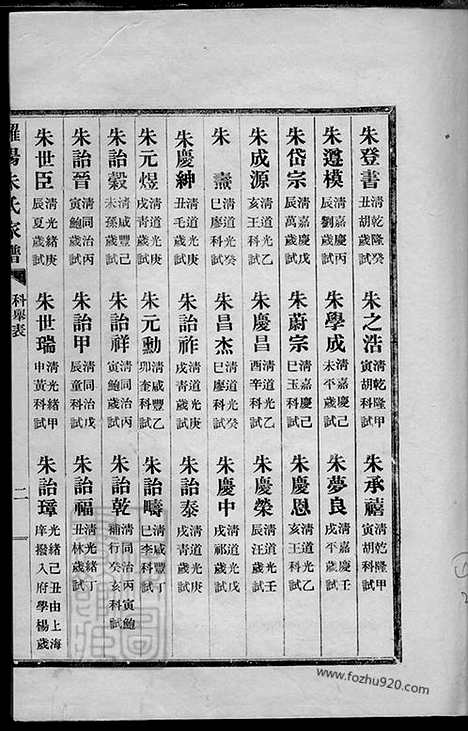 朱登書 清乾隆癸丑胡歲試 朱之浩 清乾隆甲寅胡科試 朱承禧 清乾隆甲寅胡科試
朱遵模 清嘉慶丙辰劉歲試 朱學成 清嘉慶己未平歲試 朱夢良 清嘉慶壬戌平歲試
朱岱宗 清嘉慶戊辰萬歲試 朱蔚宗 清嘉慶己巳玉科試 朱慶恩 清道光乙亥王科試
朱成源 清道光乙亥王科試 朱慶昌 清道光乙酉辛科試 朱慶榮 清道光壬辰汪歲試
朱燾 清道光癸巳廖科試 朱昌杰 清道光癸巳廖科試 朱慶中 清道光戊戌祁歲試
朱慶紳 清道光丑毛歲試 朱詒祚 清道光庚戌青歲試 朱詒泰 清道光庚戌青歲試
朱元煜 清道光庚戌青歲試 朱元勳 清咸豐乙卯奎科試 朱詒疇 清咸豐丁巳李科試
朱詒穀 清咸豐己未孫歲試 朱詒祥 清同治丙寅鮑歲試 朱詒乾 清同治丙寅鮑補行癸亥科試
朱詒晉 清同治丙寅鮑歲試 朱詒甲 清同治戊辰童科試 朱詒福 清光緒丁丑林歲試
朱世臣 清光緒庚辰夏歲試 朱世瑞 清光緒甲申黃科試 朱詒璋 光緒己丑由上海庠撥入府學楊歲試
陽朱氏家譜 科舉表 二
www.fozhu920.com